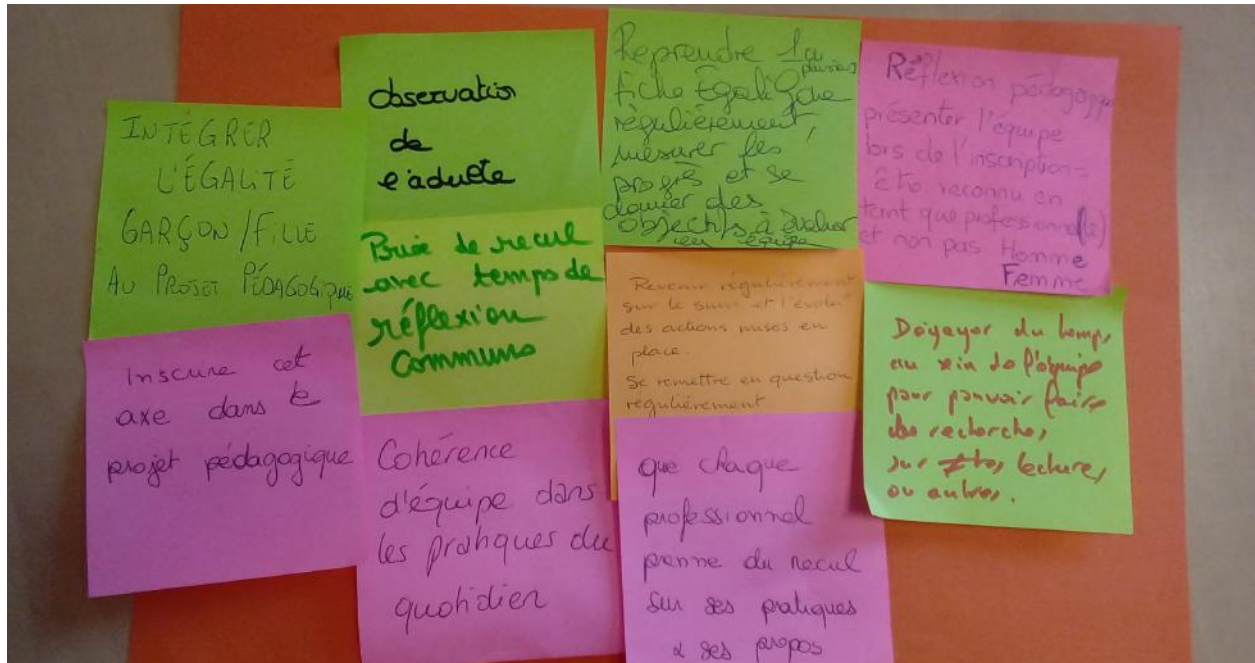 INTÉGRER
L'ÉGALITÉ
GARÇON/FILLE
AU PROJET PÉDAGOGIQUE
Inscrire cet
axe dans le
projet pédagogique
Observation
de
l'adulte
Prise de recul
avec temps de
réflexion
communs
Cohérence
d'équipe dans
les pratiques du
quotidien
Reprendre la
fiche
régulièrement,
mesurer les
progrès et se
donner des
objectifs à évaluer
en équipe
Revenir régulièrement
sur le suivi et l'évolu°
des actions mises en
place.
Se remettre en question
régulièrement
que chaque
professionnel
prenne du recul
sur ses pratiques
& ses propos
Réflexion pédagogique
présenter l'équipe
lors de l'inscription =
être reconnu en
tant que professionnel(le)
et non pas Homme
Femme
Dégager du temps,
au sein de l'équipe
pour pouvoir faire
des recherches,
sur ≠ts, lectures,
ou autres.